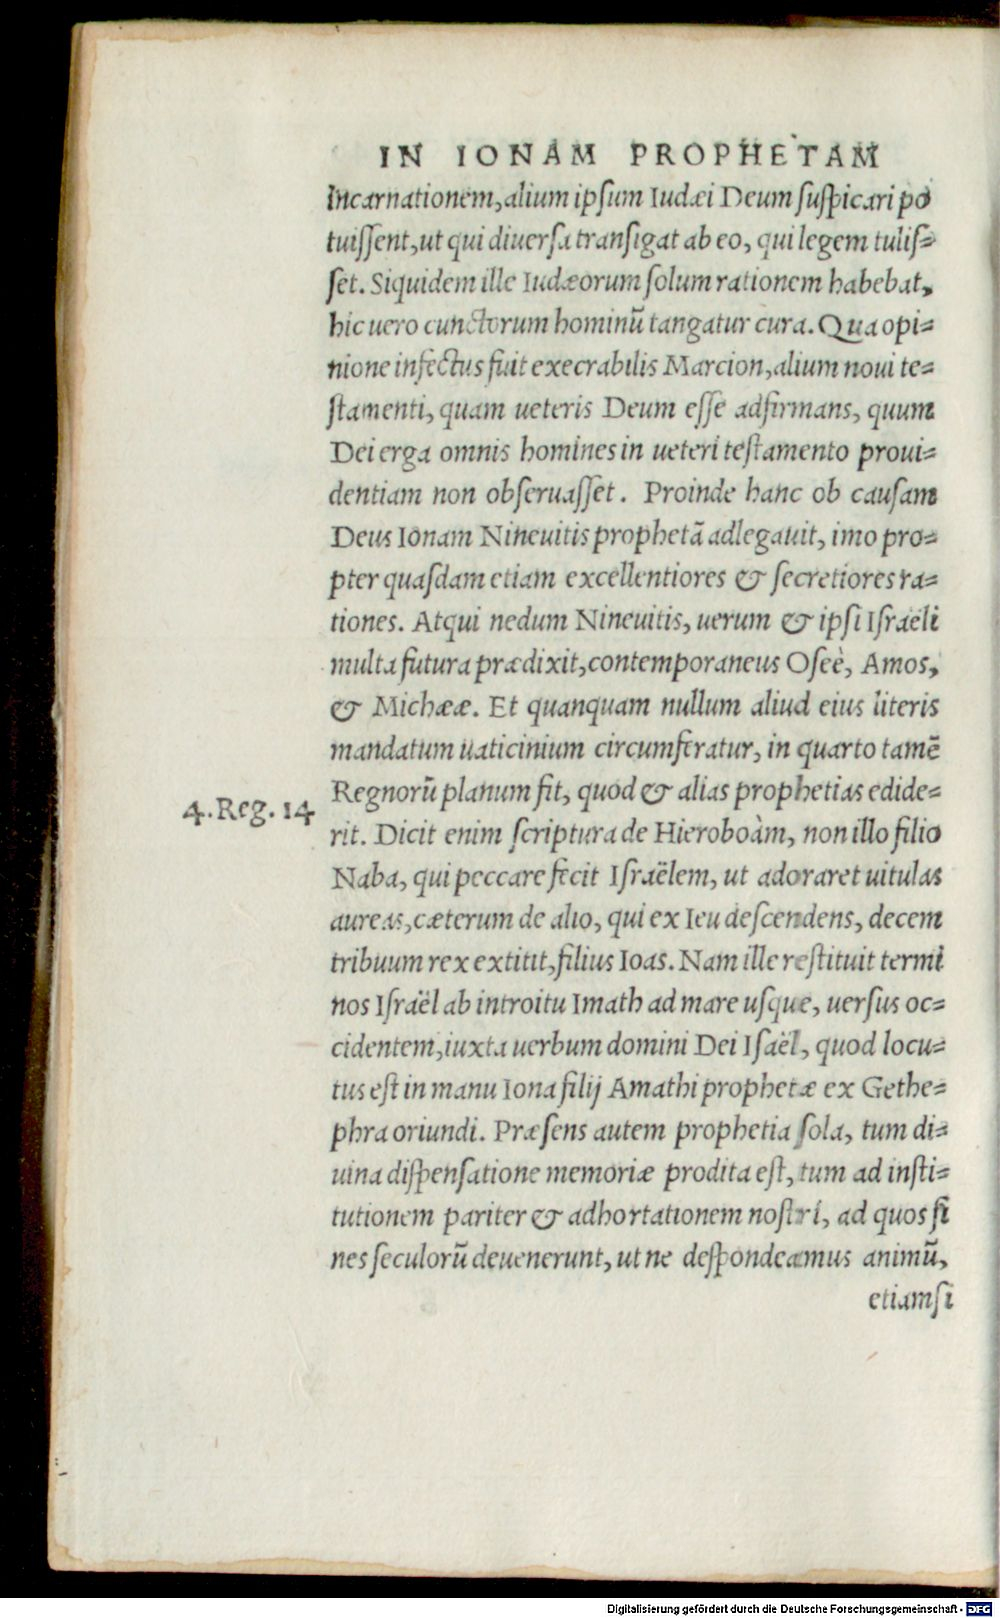 IN IONAM PROPHETAM
Incarnationem, alium ipsum Iudæi Deum suspicari po
tuissent, ut qui diuersa transigat ab eo, qui legem tulis-
set. Siquidem ille Iudæorum solum rationem habebat,
hic uero cunctorum hominū tangatur cura. Qua opi-
nione infectus fuit execrabilis Marcion, alium noui te-
stamenti, quam ueteris Deum esse adfirmans, quum
Dei erga omnis homines in ueteri testamento proui-
dentiam non obseruasset. Proinde hanc ob causam
Deus Ionam Nineuitis prophetã adlegauit, imo pro-
pter quasdam etiam excellentiores & secretiores ra-
tiones. Atqui nedum Nineuitis, uerum & ipsi Israëli
multa futura prædixit, contemporaneus Oseè, Amos,
& Michææ. Et quanquam nullum aliud eius literis
mandatum uaticinium circumferatur, in quarto tamẽ
Regnorū planum fit, quod & alias prophetias edide-
4. Reg. 14
rit. Dicit enim scriptura de Hieroboàm, non illo filio
Naba, qui peccare fecit Israëlem, ut adoraret uitulas
aureas, cæterum de alio, qui ex Ieu descendens, decem
tribuum rex extitit, filius Ioas. Nam ille restituit termi
nos Israël ab introitu Imath ad mare usque, uersus oc-
cidentem, iuxta uerbum domini Dei Isaël, quod locu-
tus est in manu Iona filij Amathi prophetæ ex Gethe-
phra oriundi. Præsens autem prophetia sola, tum di-
uina dispensatione memoriæ prodita est, tum ad insti-
tutionem pariter & adhortationem nostri, ad quos fi
nes seculorū deuenerunt, ut ne despondeamus animū,
etiamsi
Digitalisierung gefördert durch die Deutsche Forschungsgemeinschaft - DFG